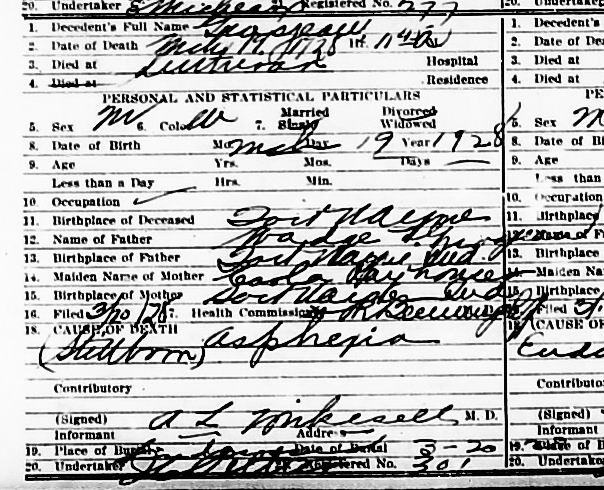 20. Undertaker Registered No. 277
1. Decedent's Full Name
2. Date of Death Mch 19 1928
3. Died at Lutheran Hospital
4. Died at Residence
PERSONAL AND STATISTICAL PARTICULARS
5. Sex M 6. Color W 7. Married Single Divorced Widowed
8. Date of Birth Mo. Mch Day 19 Year 1928
9. Age Yrs. Mos. Days
Less than a Day Hrs. Min.
10. Occupation
11. Birthplace of Deceased Fort Wayne
12. Name of Father
13. Birthplace of Father Fort Wayne Ind.
14. Maiden Name of Mother
15. Birthplace of Mother Fort Wayne Ind
16. Filed 3/20/28 17. Health Commissioner
18. CAUSE OF DEATH
(Stillborn) Asphexia
Contributory
(Signed) A L Mikesell M. D.
Informant Address
19. Place of Burial Date of Burial 3-20
20. Undertaker Registered No. 301
20. Undertaker
1. Decedent's
2. Date of Dea
3. Died at
4. Died at
PE
5. Sex M
8. Date of Bi
9. Age
Less than
10. Occupation
11. Birthplace
12. Name of F
13. Birthplace
14. Maiden Na
15. Birthplace
16. Filed 3/
18. CAUSE OF
Contributo
(Signed)
Informant
19. Place of Bu
20. Undertaker